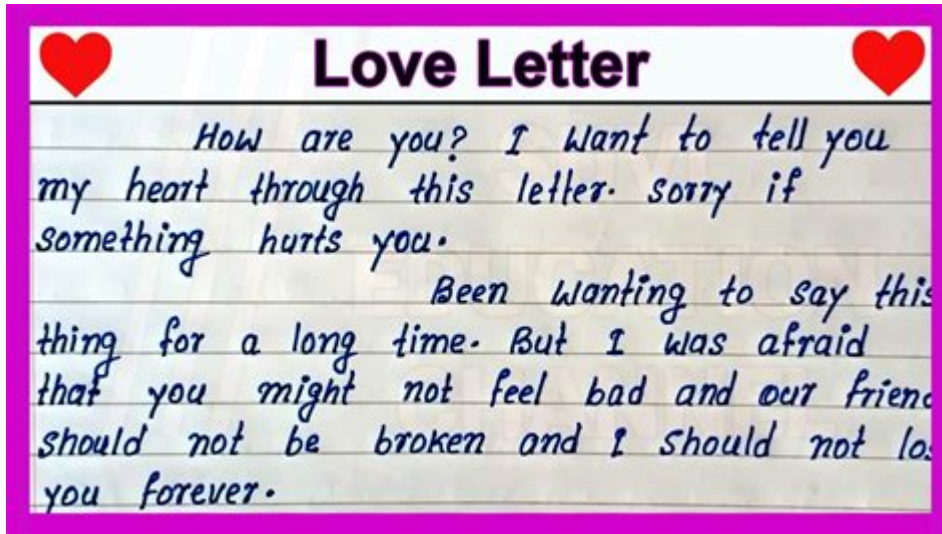 Love Letter
How are you? I want to tell you
my heart through this letter. sorry if
something hurts you.
Been wanting to say this
thing for a long time. But I was afraid
that you might not feel bad and our
should not be broken and I should not
you forever.